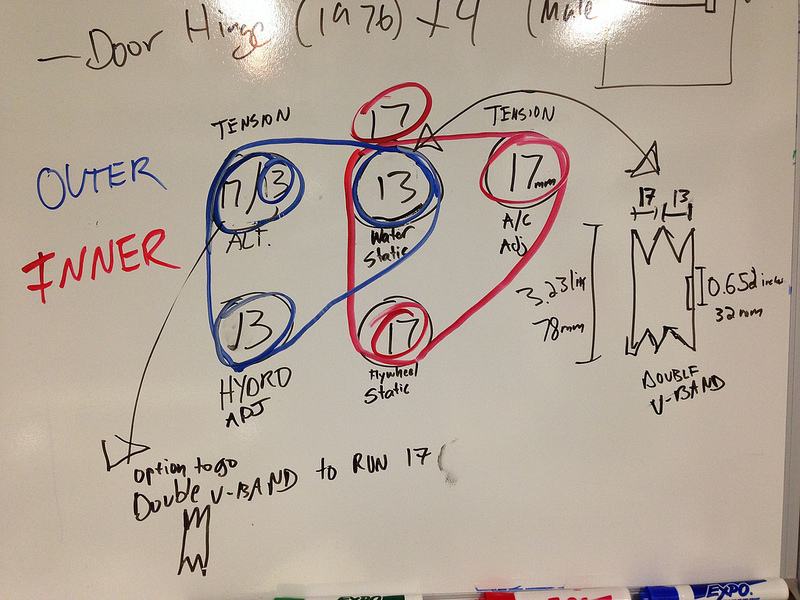 - Door Hinge (1976) x 4 (Male
TENSION
17
TENSION
OUTER
17/13
13
17mm
INNER
ALT.
Water
Static
A/C
Adj
17 13
13
17
3.23 in
78mm
0.652 inches
32 mm
HYDRO
ADJ
Flywheel
Static
DOUBLE
V-BAND
option to go
Double V-BAND to RUN 17
EXPO
EXPO
EXPO.